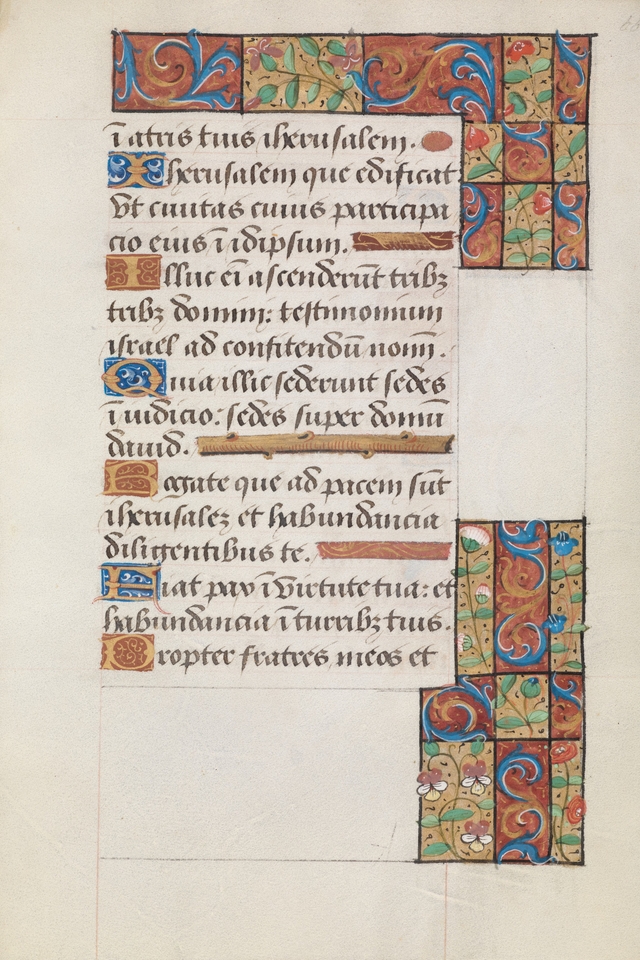 ī atris tuis iherusalem.
Iherusalem que edificat᷑
vt ciuitas cuius participa
cio eius ī idipsum.
Illuc ei̅ ascenderūt tribꝫ
tribꝫ domini: testimonium
israel ad confitendū nomī.
Quia illic sederunt sedes
ī iudicio: sedes super domū
dauid.
Rogate que ad pacem sūt
iherusalēꝫ et habundancia
diligentibus te.
Fiat pax ī virtute tua: et
habundancia ī turribꝫ tuis.
Propter fratres meos et